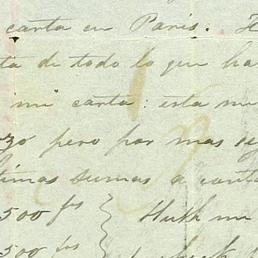 carta en Paris.
ta de todo lo que ha
mi carta: esta
pero por mas
timas sumas a
500 frs } Huth
500 frs